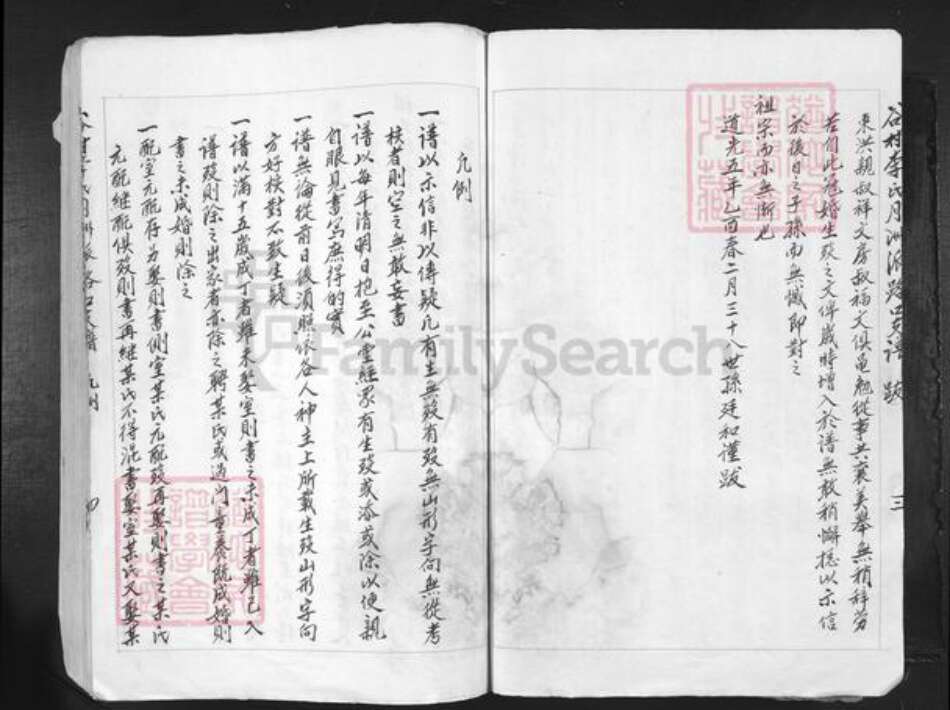 谷村李氏月洲派路口吴谱 跋 三
来洪親叔祥文房叔福文俱黽勉從事共襄美舉無稍辞劳
若們此冠婚生殁之文俾歲時增入於譜無敢稍懈總以示信
於後日之子孫而無憾即對之
祖宗而亦無慚也
道光五年乙酉春二月三十八世孫廷和謹跋
凡例
一譜以示信非以傳疑凡有生無殁有殁無山形字向無從考
核者則空之無敢妄書
一譜以每年清明日把至公堂經衆有生殁或添或除以便親
自眼見書寫庶得的實
一譜無論從前日後須照依各人神主上所載生殁山形字向
方好核對不致生疑
一譜以满十五歲成丁者雖未娶室則書之未成丁者雖已入
譜殁則除之出家者亦除之聘某氏或過門童養既成婚則
書之未成婚則除之
一配室元配存为娶則書側室某氏元配殁再娶則書之某氏
元配继配俱殁則書再继某氏不得混書娶室某氏又娶某
凡例 四
FamilySearch